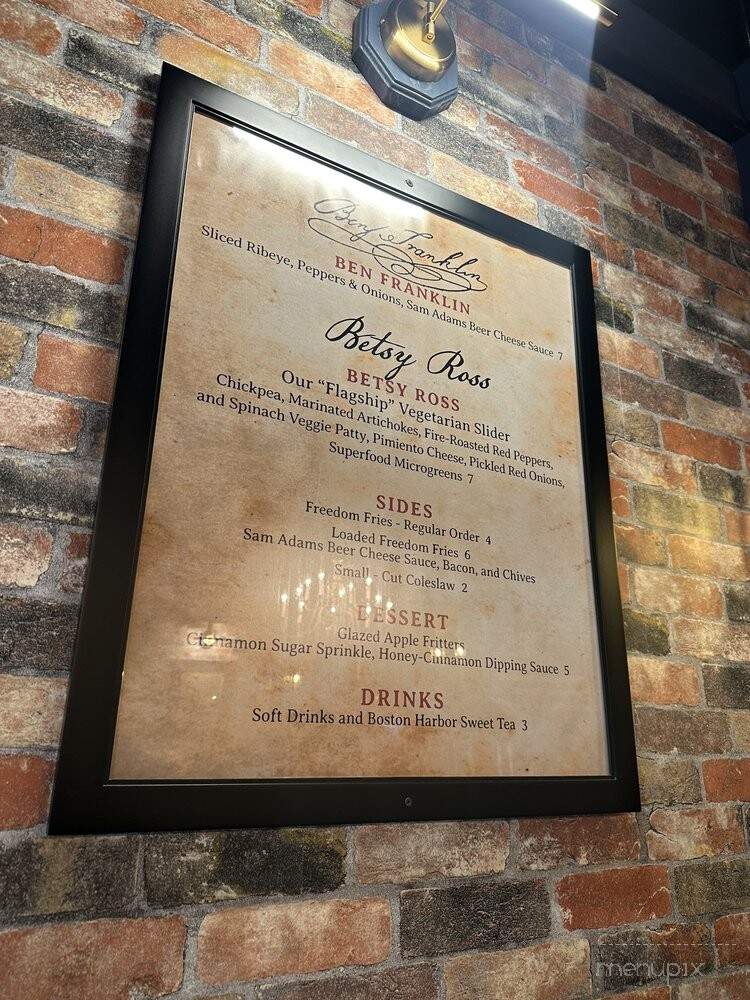 Benj Franklin
BEN FRANKLIN
Sliced Ribeye, Peppers & Onions, Sam Adams Beer Cheese Sauce 7
Betsy Ross
BETSY ROSS
Our “Flagship” Vegetarian Slider
Chickpea, Marinated Artichokes, Fire-Roasted Red Peppers,
and Spinach Veggie Patty, Pimiento Cheese, Pickled Red Onions,
Superfood Microgreens 7
SIDES
Freedom Fries - Regular Order 4
Loaded Freedom Fries 6
Sam Adams Beer Cheese Sauce, Bacon, and Chives
Small - Cut Coleslaw 2
DESSERT
Glazed Apple Fritters
Cinnamon Sugar Sprinkle, Honey-Cinnamon Dipping Sauce 5
DRINKS
Soft Drinks and Boston Harbor Sweet Tea 3
menupix